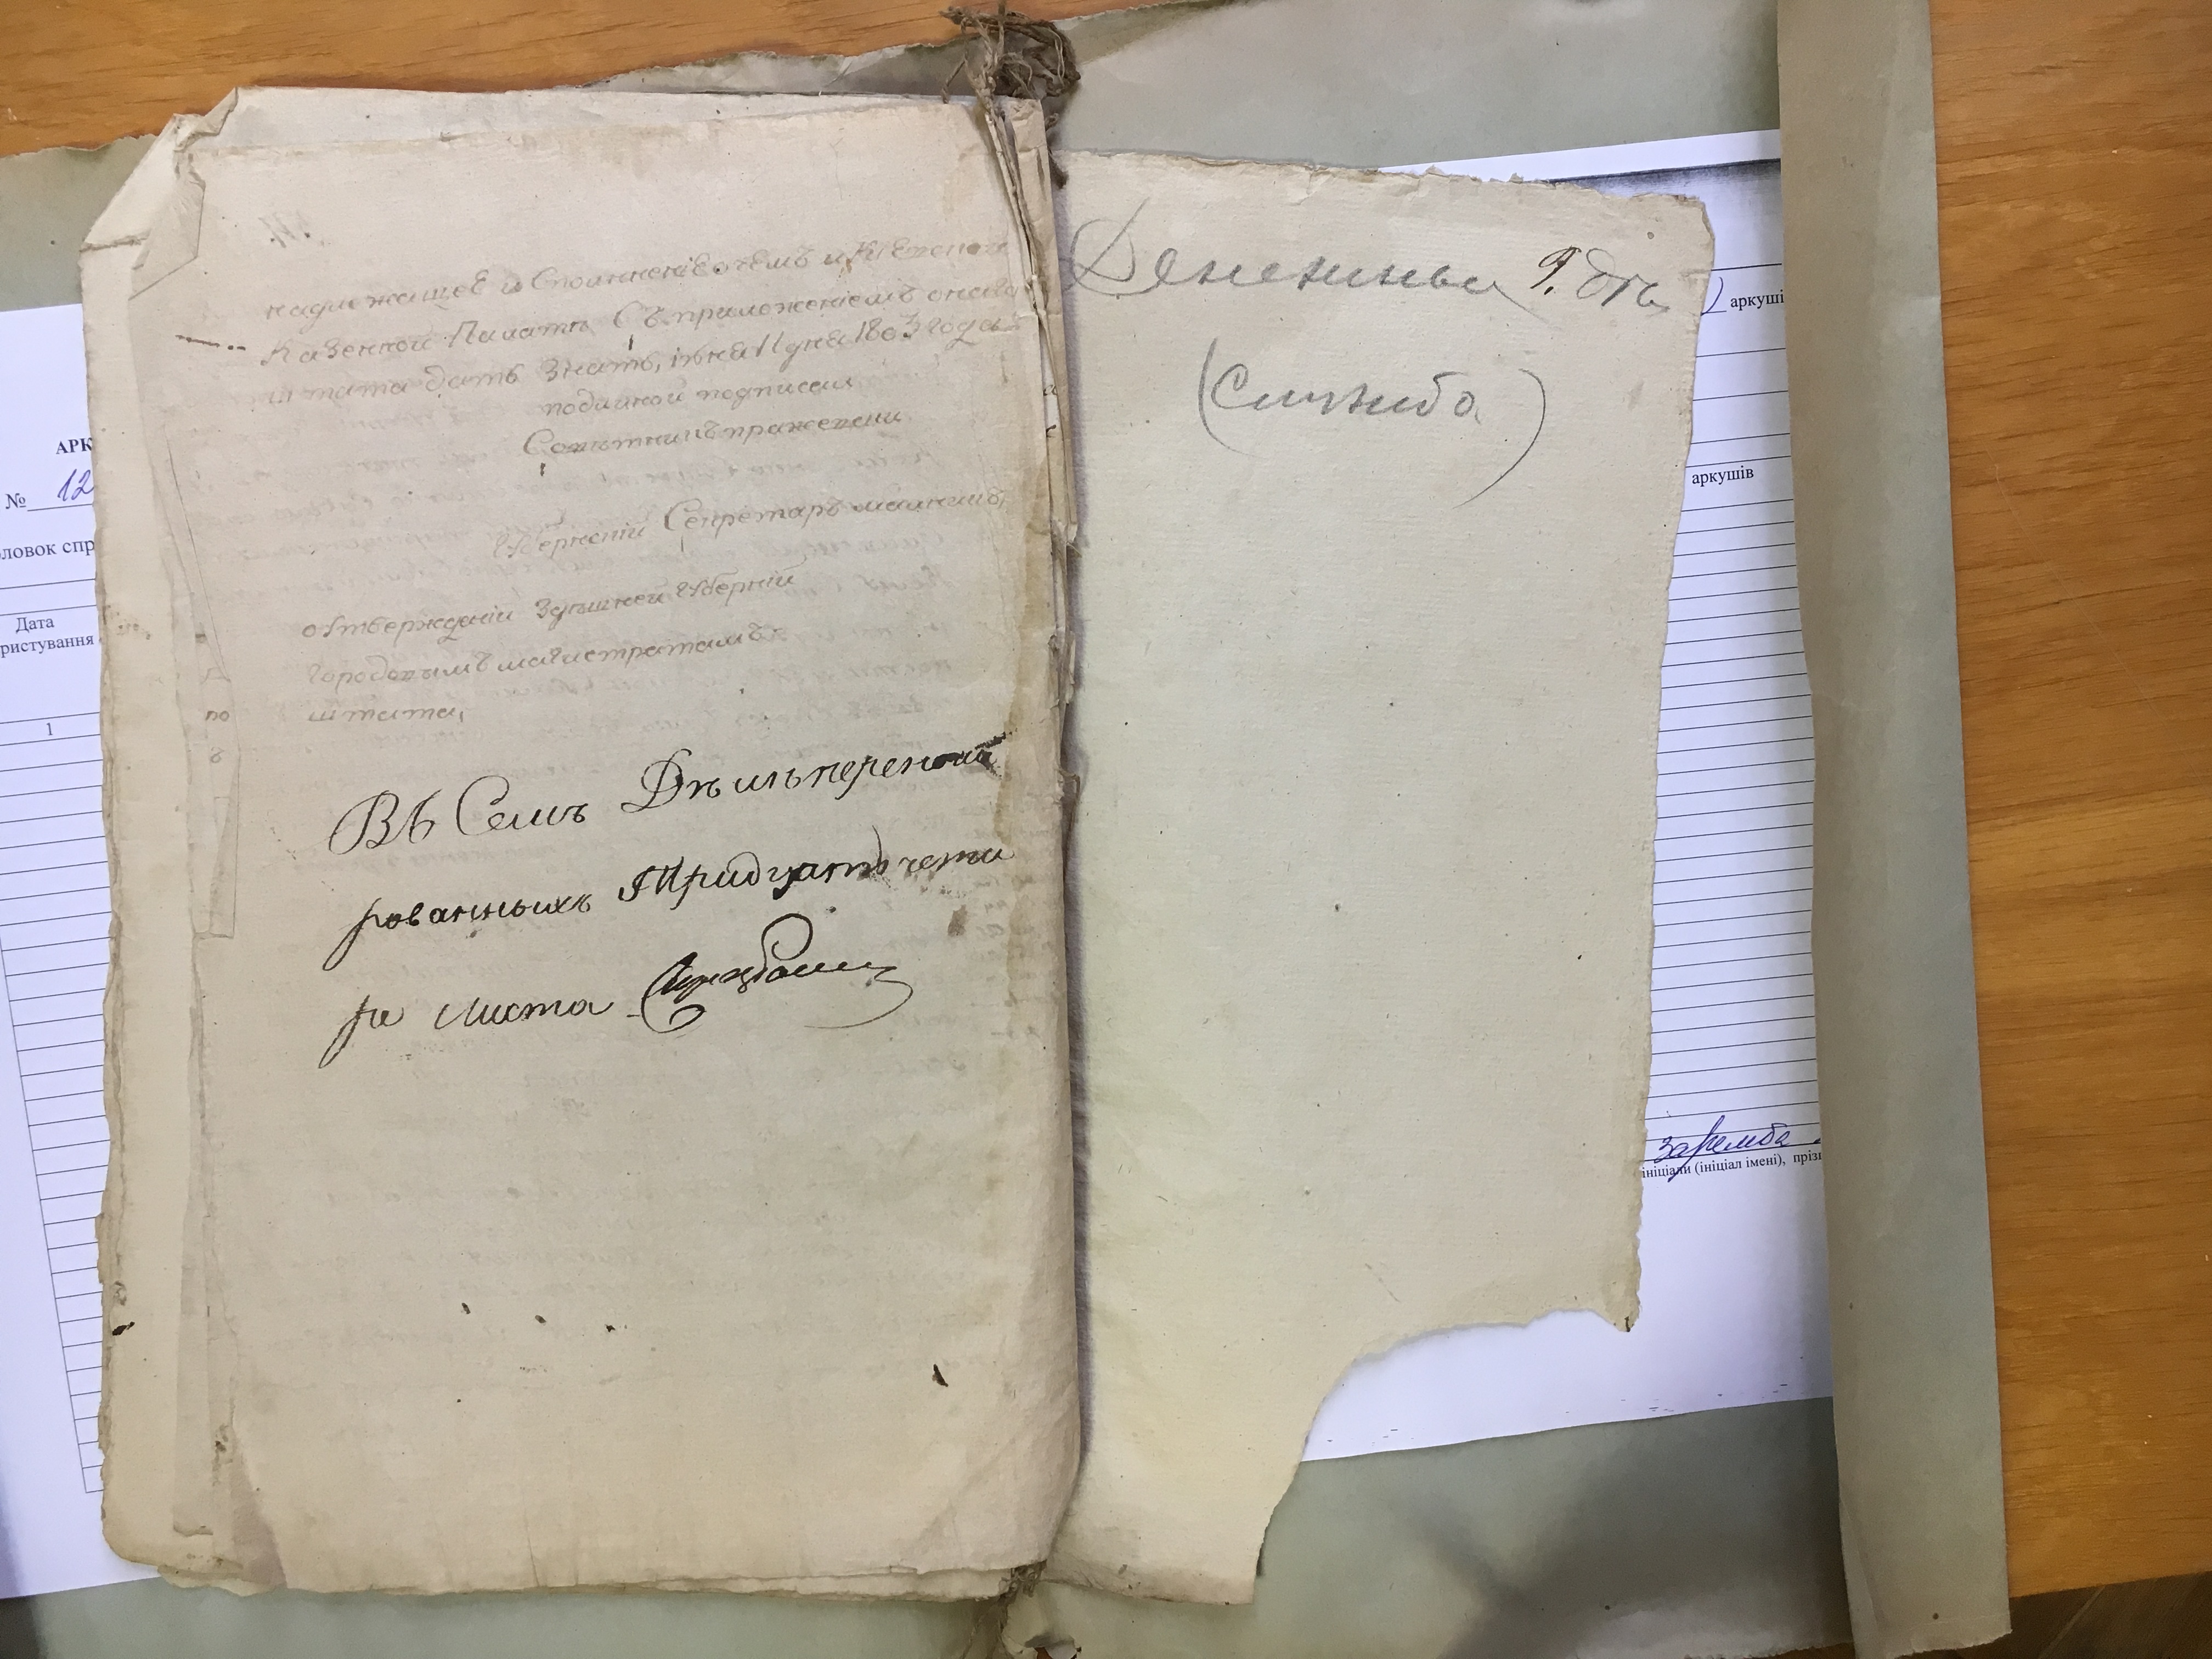 надлежащее исполнение о чемъ и Киевской
Казенной Палатѣ съ приложениемъ онаго
штата дать знать, іюня 11 дня 1803 года
подлинной подписали
Советникъ
Губернскій Секретарь
о Утвержденіи Здѣшней Губерніи
Городовымъ магистратамъ
штата,
по
в
Въ Семъ Дѣлѣ перенуме
рованныхъ Тридцать четы
ре листа
Денежный
(Служба)
АРК
№ 12
ловок спр
Дата
ристування
1
аркуші
аркушів
Заремба
ініціали (ініціал імені), пріз